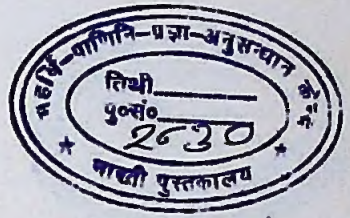 महर्षि-पाणिनि-प्रज्ञा-अनुसन्धान केन्द्र
तिथी
पु०सं०
2830
भारती पुस्तकालय